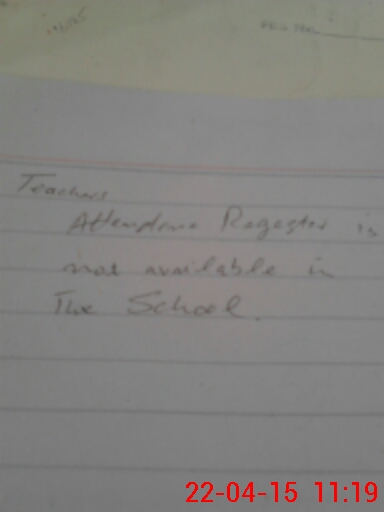 Teachers
Attendance Regester is
not available in
The School.
22-04-15 11:19